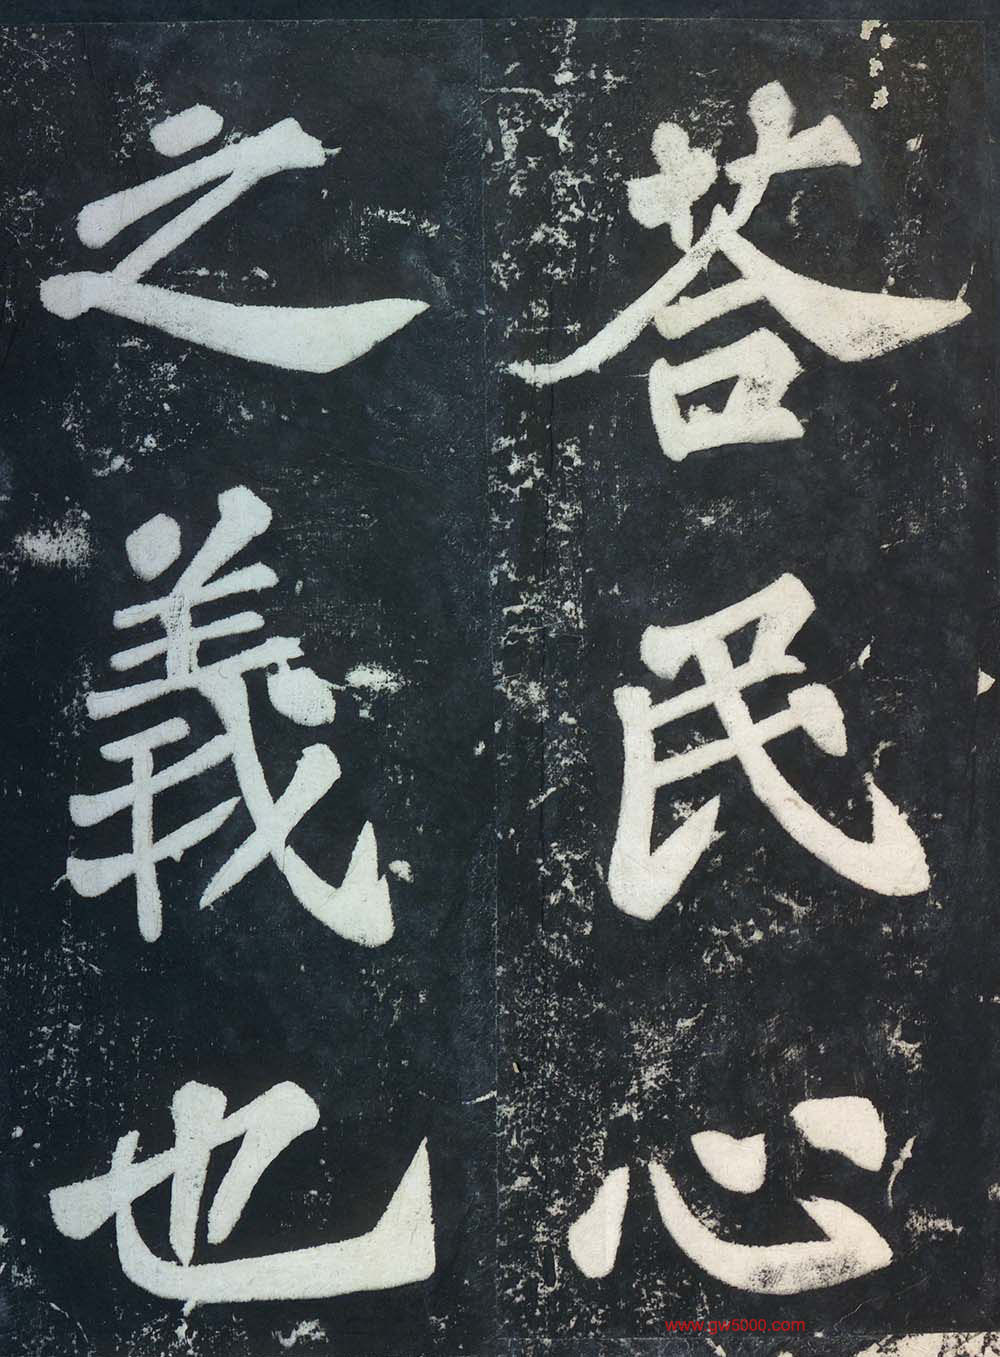 荅民心
之義也
www.gw5000.com